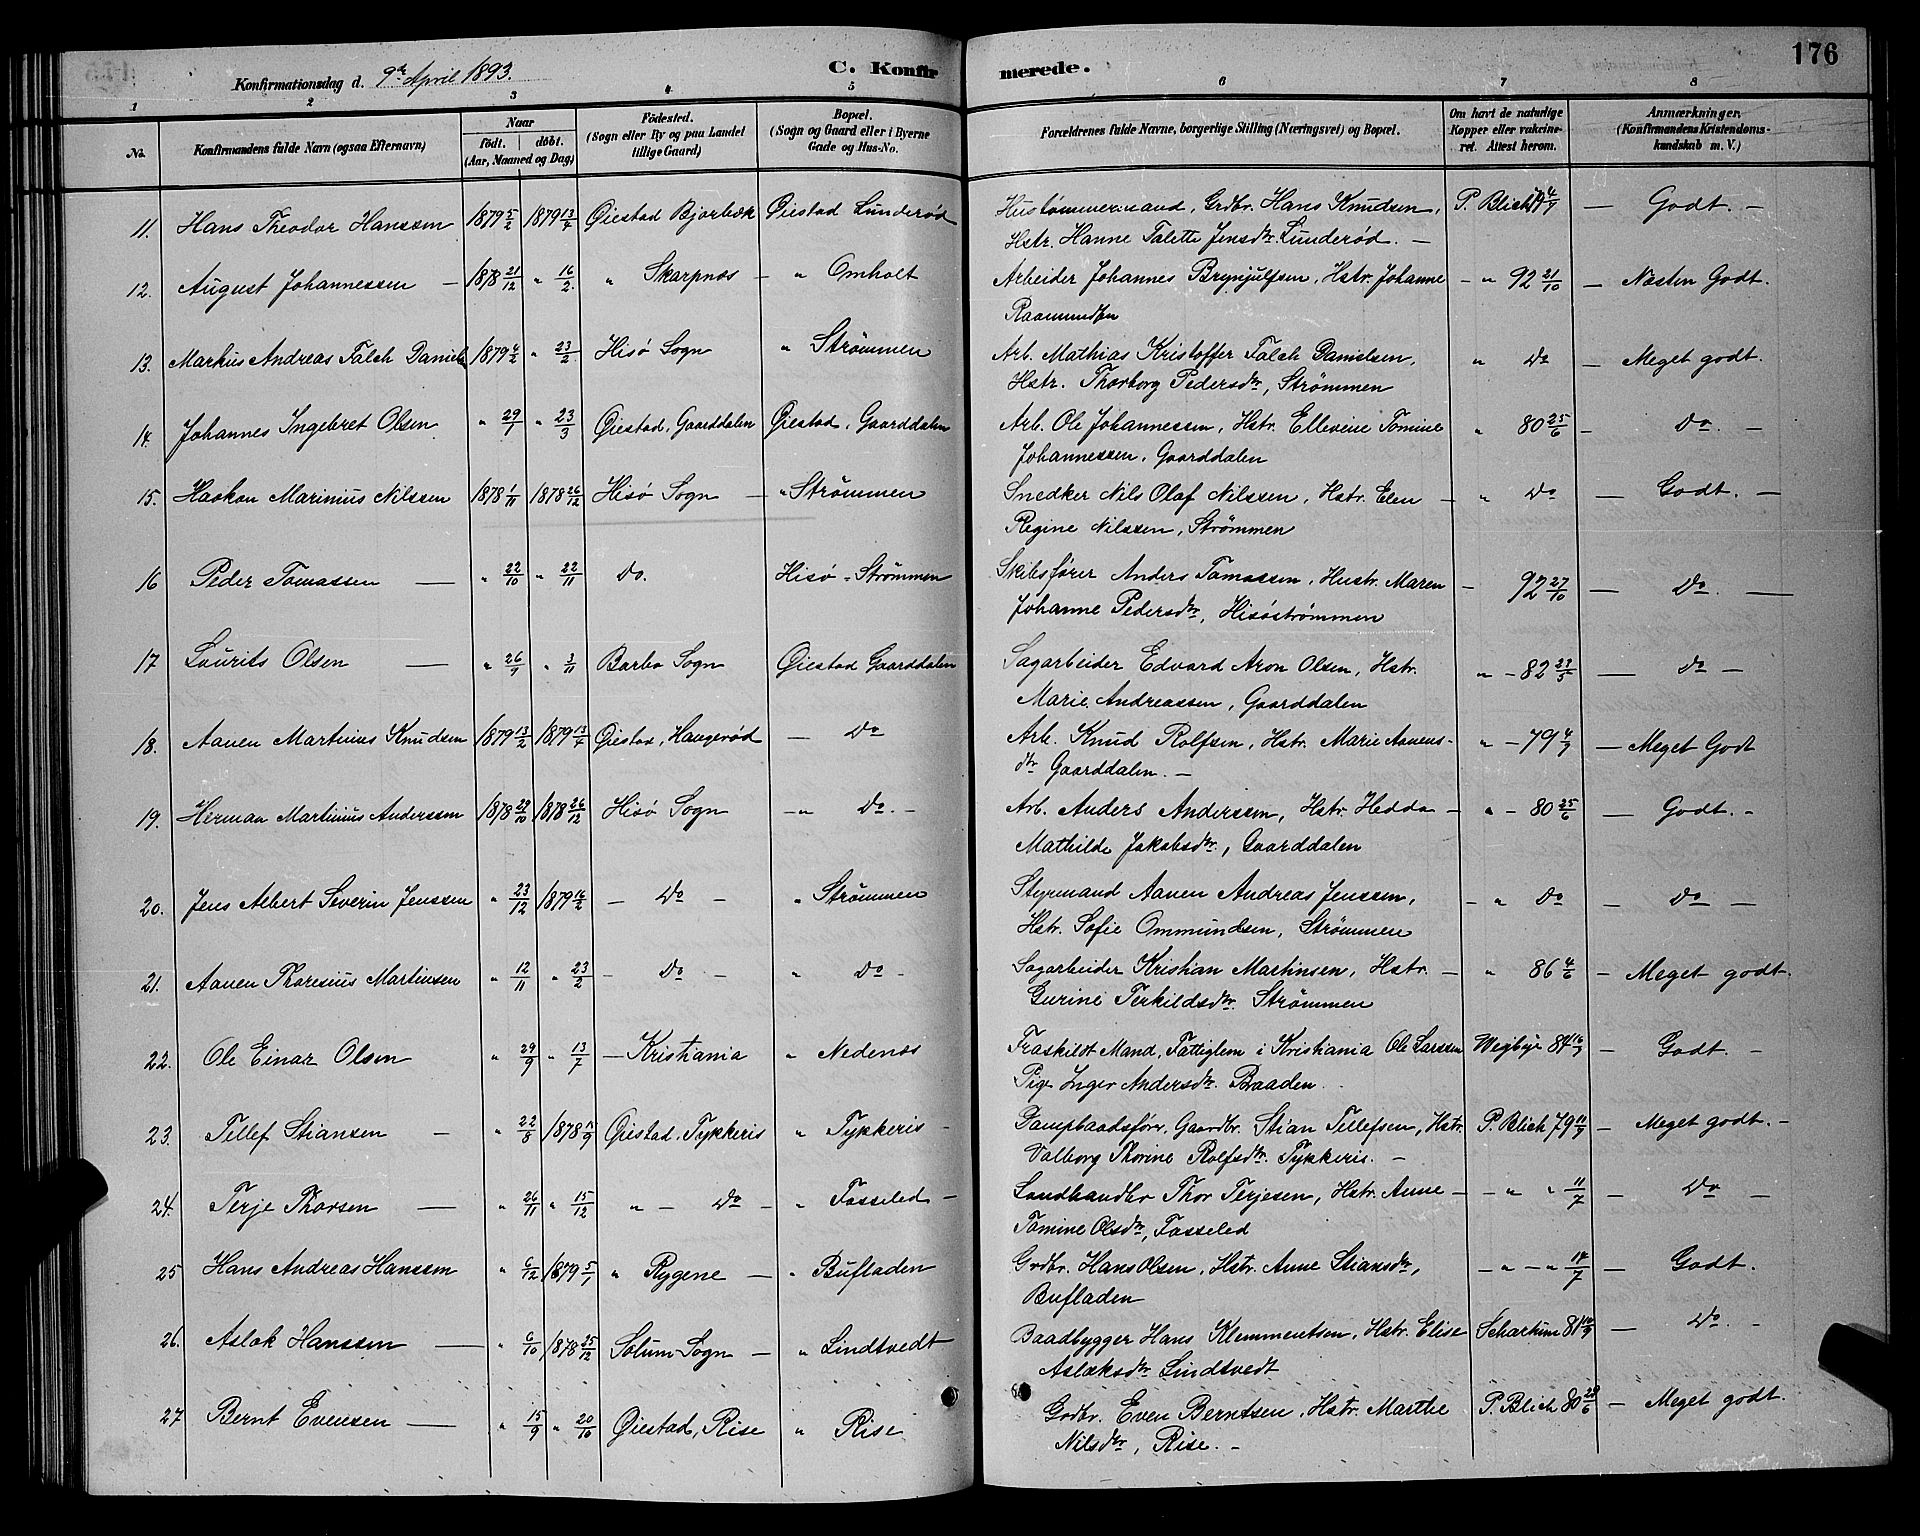 Konfirmationsdag d. 9de April 1893.
C. Konfirmerede.
176
1 2 3 4 5 6 7 8
No.
Konfirmandens fulde Navn (ogsaa Efternavn)
Naar
födt. döbt.
(Aar, Maaned og Dag)
Födested.
(Sogn eller By og paa Landet
tillige Gaard)
Bopæl.
(Sogn og Gaard eller i Byerne
Gade og Hus-No.
Forældrenes fulde Navne, borgerlige Stilling (Næringsvei) og Bopæl.
Om havt de naturlige
Kopper eller vakcine-
ret. Attest herom.
Anmærkninger.
(Konfirmandens Kristendoms-
kundskab m. V.)
11. Hans Theodor Hanssen 1879 5/2 1879 13/4 Øiestad Bjorbæk Øiestad Lunderød Hustømmermand, Grdbr. Hans Knudsen, P. Blich 79 4/9 — Godt. —
Hstr. Hanne Talette Jensdtr. Lunderød. —
12. August Johannessen — 1878 21/12 " 16/2 " Skarpnæs — " Omholt Arbeider Johannes Brynjulfsen, Hstr. Johanne — " 92 21/10 — Næsten Godt.
Raamundsen
13. Markus Andreas Falch Daniels 1879 4/2 " 23/2 Hisø Sogn " Strømmen Arb. Mathias Kristoffer Falch Danielsen, " Do — Meget godt.
Hstr. Thorborg Pedersdtr, Strømmen
14. Johannes Ingebret Olsen " 29/1 " 23/3 Øiestad, Gaarddalen Øiestad, Gaarddalen Arb. Ole Johannessen, Hstr. Elleveine Tomine " 80 25/6 — Do. —
Johannessen, Gaarddalen
15. Haakon Marinius Nilssen 1878 1/11 1878 26/12 Hisø Sogn — " Strømmen Snedker Nils Olaf Nilssen, Hstr. Elen — " Do — Godt. —
Regine Nilssen, Strømmen
16 Peder Tomassen — " 22/10 " 22/11 Do. Hisø - Strømmen Skibsfører Anders Tomassen, Hustr. Maren — 92 27/10 — Do. —
Johanne Pedersdtr, Hisøstrømmen
17 Laurits Olsen — " 26/9 " 3/11 Barbo Sogn Øiestad Gaarddalen Sagarbeider Edvard Aron Olsen, Hstr. " — 82 23/5 — Do —
Marie Andreassen, Gaarddalen
18. Aanen Martinius Knudsen 1879 13/2 1879 13/4 Øiestad, Haugerød — Do Arb. Knud Rolfsen, Hstr. Marie Aanens- " — 79 4/9 — Meget Godt
dtr Gaarddalen. —
19. Herman Martinius Anderssen 1878 29/10 1878 26/12 Hisø Sogn — " Do. — Arb. Anders Anderssen, Hstr. Hedda — " — 80 25/6 — Godt. —
Mathilde Jakobsdtr., Gaarddalen
20. Jens Albert Severin Jenssen " 23/12 1879 16/2 — Do — " Strømmen Styrmand Aanen Andreas Jenssen, — " Do — Do —
Hstr. Sofie Ommundsen, Strømmen
21. Aanen Thorenius Martinsen " 12/11 " 23/2 — Do — " Do — Sagarbeider Kristian Martinsen, Hstr. — " 86 4/6 — Meget godt.
Gurine Terkildsdtr. Strømmen
22. Ole Einar Olsen " 29/9 " 13/7 — Kristiania " Nedenæs Fraskildt Mand, Fattiglem i Kristiania Ole Larssen Wejbye 84 16/9 — Godt. —
Pige Inger Andersdtr. Braaden
23. Tellef Stiansen — " 22/8 1878 /9 Øiestad, Tykkeris " Tykkeris — Dampbaadsfører, Gaardbr. Stian Tellefsen, Hstr. P. Blich 79 11/9 — Meget godt. —
Valborg Thorine Rolfsdtr. Tykkeris. —
24. Terje Thorsen — " 26/11 " 15/12 " — Do — " Fosseled — Landhandler Thor Terjesen, Hstr. Anne — — " " 11/7 — Do —
Tomine Olsdtr, Fosseled
25 Hans Andreas Hanssen " 6/12 1879 5/1 " Rygene — " Bufladen Grdbr. Hans Olsen, Hstr. Anne Stiansdtr, — " — " 14/7 — Godt.
Bufladen
26. Aslak Hanssen — " 6/10 1878 25/12 Solum Sogn — " Lindtvedt Baadbygger Hans Klemmentsen, Hstr. Elise Scharkum 81 14/9 — Do. —
Aslaksdtr Lindtvedt
27 Bernt Evensen — " 15/9 " 20/10 Øiestad, Rise " Rise Grdbr. Even Berntsen, Hstr. Marthe P. Blich 80 28/6 — Meget godt
Nilsdtr, Rise. —